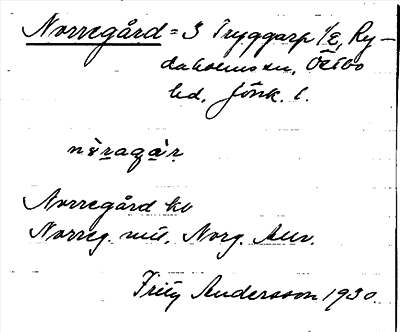 Norregård = 3 Tryggarp 1/2, Ry-
daholms sn, Östbo
hd, Jönk. l.
nòragàr
Norregård
Norreg.
Fritz Andersson 1930.